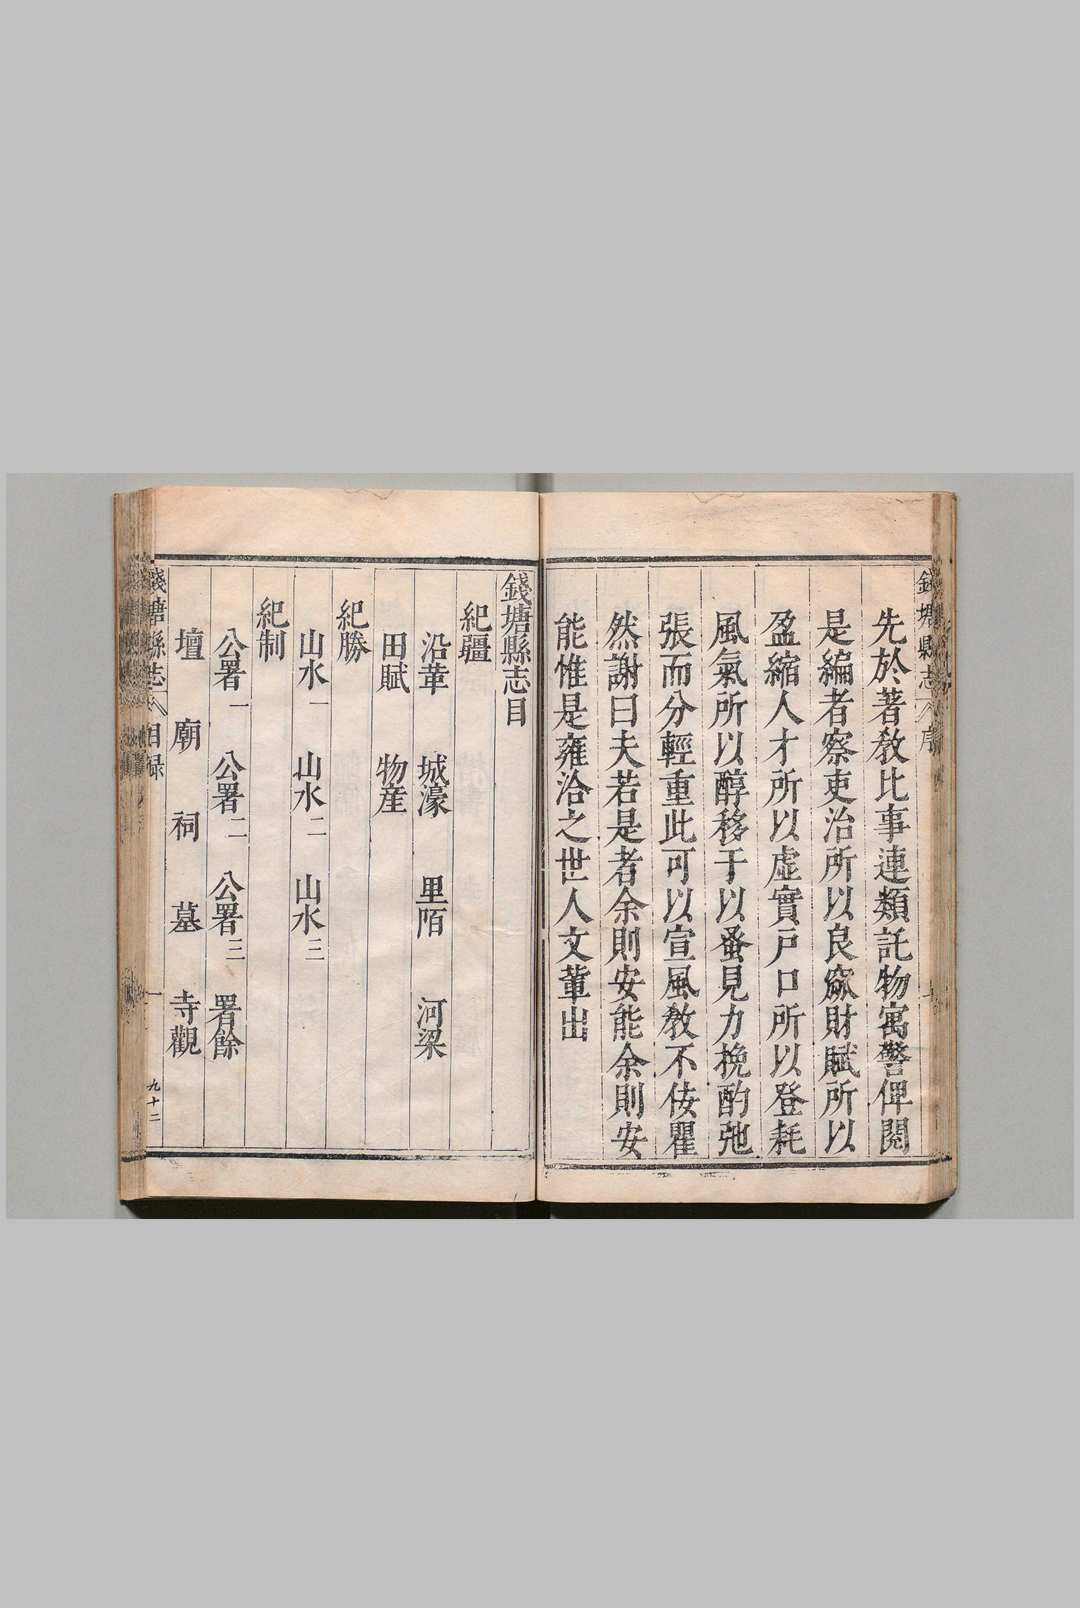 錢塘縣志 序
先於著教比事連類託物寓警俾閱
是編者察吏治所以良窳財賦所以
盈縮人才所以虛實戸口所以登耗
風氣所以醇移于以蚤見力挽酌弛
張而分輕重此可以宣風教不佞瞿
然謝曰夫若是者余則安能余則安
能惟是雍洽之世人文蔁出
錢塘縣志目
紀疆
沿革 城濠 里陌 河梁
田賦 物産
紀勝
山水一 山水二 山水三
紀制
公署一 公署二 公署三 署餘
壇 廟 祠 墓 寺觀
錢塘縣志 目録 一 九十二